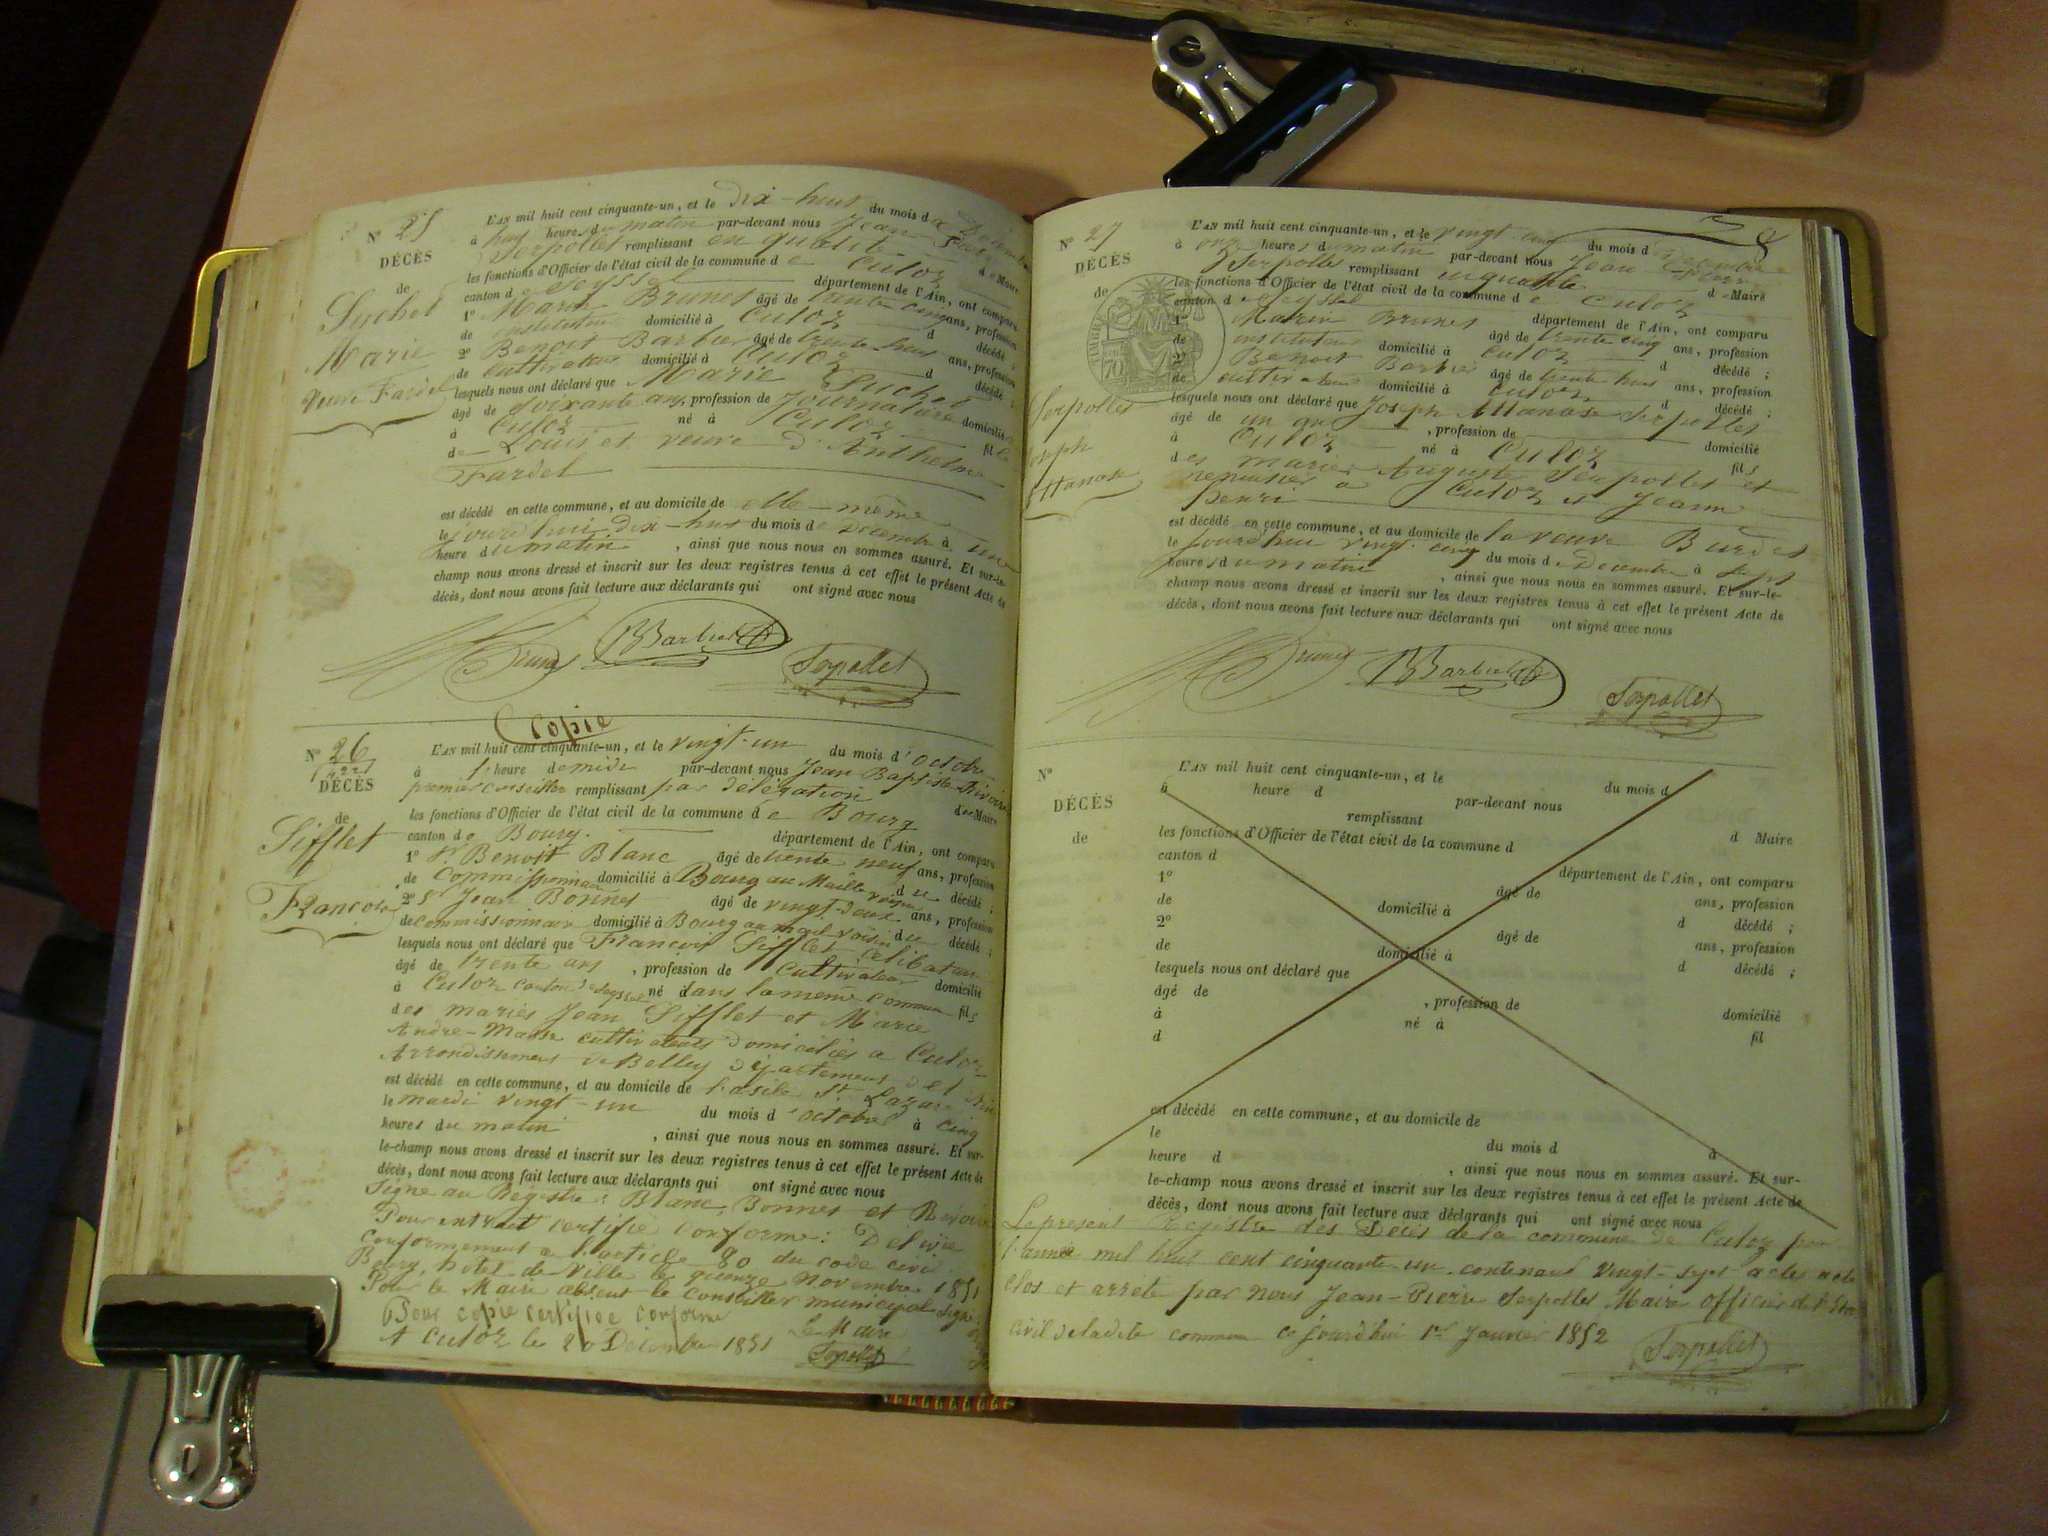 N° 25
DÉCÈS
de
Suchet
Marie
Veuve Fardel
L'AN mil huit cent cinquante-un, et le dix-huit du mois de Décembre
à huit heures du matin par-devant nous Jean Pierre
Serpollet remplissant en qualité de Maire
les fonctions d'Officier de l'état civil de la commune de Culoz
canton de Seyssel département de l'Ain, ont comparu
1° Marin Brunet âgé de trente cinq ans, profession
de instituteur domicilié à Culoz d décédé ;
2° Benoit Barbier âgé de trente huit ans, profession
de cultivateur domicilié à Culoz d décédé ;
lesquels nous ont déclaré que Marie Suchet
âgé de soixante ans, profession de Journalière domicilié
à Culoz né à Culoz fille
de Louis et veuve d'Anthelme
Fardel
est décédé en cette commune, et au domicile de elle-même
le jourd'hui dix-huit du mois de Décembre à une
heure du matin , ainsi que nous nous en sommes assuré. Et sur-le-
champ nous avons dressé et inscrit sur les deux registres tenus à cet effet le présent Acte de
décès, dont nous avons fait lecture aux déclarants qui ont signé avec nous
Brunet BBarbier Serpollet
Copie
N° 26
DÉCÈS
de
Sifflet
François
L'AN mil huit cent cinquante-un, et le vingt-un du mois d'octobre
à l'heure de midi par-devant nous Jean Baptiste
premier conseiller remplissant par délégation du Maire
les fonctions d'Officier de l'état civil de la commune de Bourg
canton de Bourg. département de l'Ain, ont comparu
1° Sr Benoit Blanc âgé de trente neuf ans, profession
de Commissionnaire domicilié à Bourg au Mail voisin du décédé ;
2° Sr Jean Bonnet âgé de vingt-deux ans, profession
de commissionnaire domicilié à Bourg au mail voisin du décédé ;
lesquels nous ont déclaré que François Sifflet célibataire
âgé de trente ans , profession de Cultivateur domicilié
à Culoz canton de Seyssel né dans la même commune fils
des mariés Jean Sifflet et Marie
André-Masse cultivateurs domiciliés à Culoz
Arrondissement de Belley département de l'Ain
est décédé en cette commune, et au domicile de l'asile St Lazare
le mardi vingt-un du mois d'octobre à cinq
heures du matin , ainsi que nous nous en sommes assuré. Et sur-
le-champ nous avons dressé et inscrit sur les deux registres tenus à cet effet le présent Acte de
décès, dont nous avons fait lecture aux déclarants qui ont signé avec nous
Signé au Registre : Blanc, Bonnet et
Pour extrait certifié conforme : Délivré
conformément à l'article 80 du code civil
Bourg, hôtel de Ville le quinze Novembre 1851
Pour le Maire absent le conseiller municipal signé
Pour copie certifiée conforme
A Culoz le 20 Décembre 1851 Le Maire
Serpollet
N° 27
DÉCÈS
de
Serpollet
Joseph
Attanase
L'AN mil huit cent cinquante-un, et le vingt cinq du mois de Décembre
à onze heures du matin par-devant nous Jean Pierre
Serpollet remplissant en qualité d Maire
les fonctions d'Officier de l'état civil de la commune de Culoz
canton de Seyssel département de l'Ain, ont comparu
1° Marin Brunet âgé de trente cinq ans, profession
de instituteur domicilié à Culoz d décédé ;
2° Benoit Barbier âgé de trente huit ans, profession
de cultivateur domicilié à Culoz d décédé ;
lesquels nous ont déclaré que Joseph Attanase Serpollet
âgé de un an , profession de domicilié
à Culoz né à Culoz fils
des mariés Auguste Serpollet et
menuisier à Culoz et Jeanne
Henri
est décédé en cette commune, et au domicile de la veuve Burdet
le jourdhui vingt-cinq du mois de Décembre à sept
heures du matin , ainsi que nous nous en sommes assuré. Et sur-le-
champ nous avons dressé et inscrit sur les deux registres tenus à cet effet le présent Acte de
décès, dont nous avons fait lecture aux déclarants qui ont signé avec nous
Brunet BBarbier Serpollet
N°
DÉCÈS
de
L'AN mil huit cent cinquante-un, et le du mois d
à heure d par-devant nous
remplissant d Maire
les fonctions d'Officier de l'état civil de la commune d
canton d département de l'Ain, ont comparu
1° âgé de ans, profession
de domicilié à d décédé ;
2° âgé de ans, profession
de domicilié à d décédé ;
lesquels nous ont déclaré que
âgé de , profession de domicilié
à né à fil
d
est décédé en cette commune, et au domicile de
le du mois d à
heure d , ainsi que nous nous en sommes assuré. Et sur-
le-champ nous avons dressé et inscrit sur les deux registres tenus à cet effet le présent Acte de
décès, dont nous avons fait lecture aux déclarants qui ont signé avec nous
Le présent Registre des Décès de la commune de Culoz pour
l'année mil huit cent cinquante-un contenant vingt-sept actes a été
clos et arrêté par nous Jean-Pierre Serpollet Maire officier de l'état
civil de ladite commune ce jourd'hui 1er Janvier 1852
Serpollet